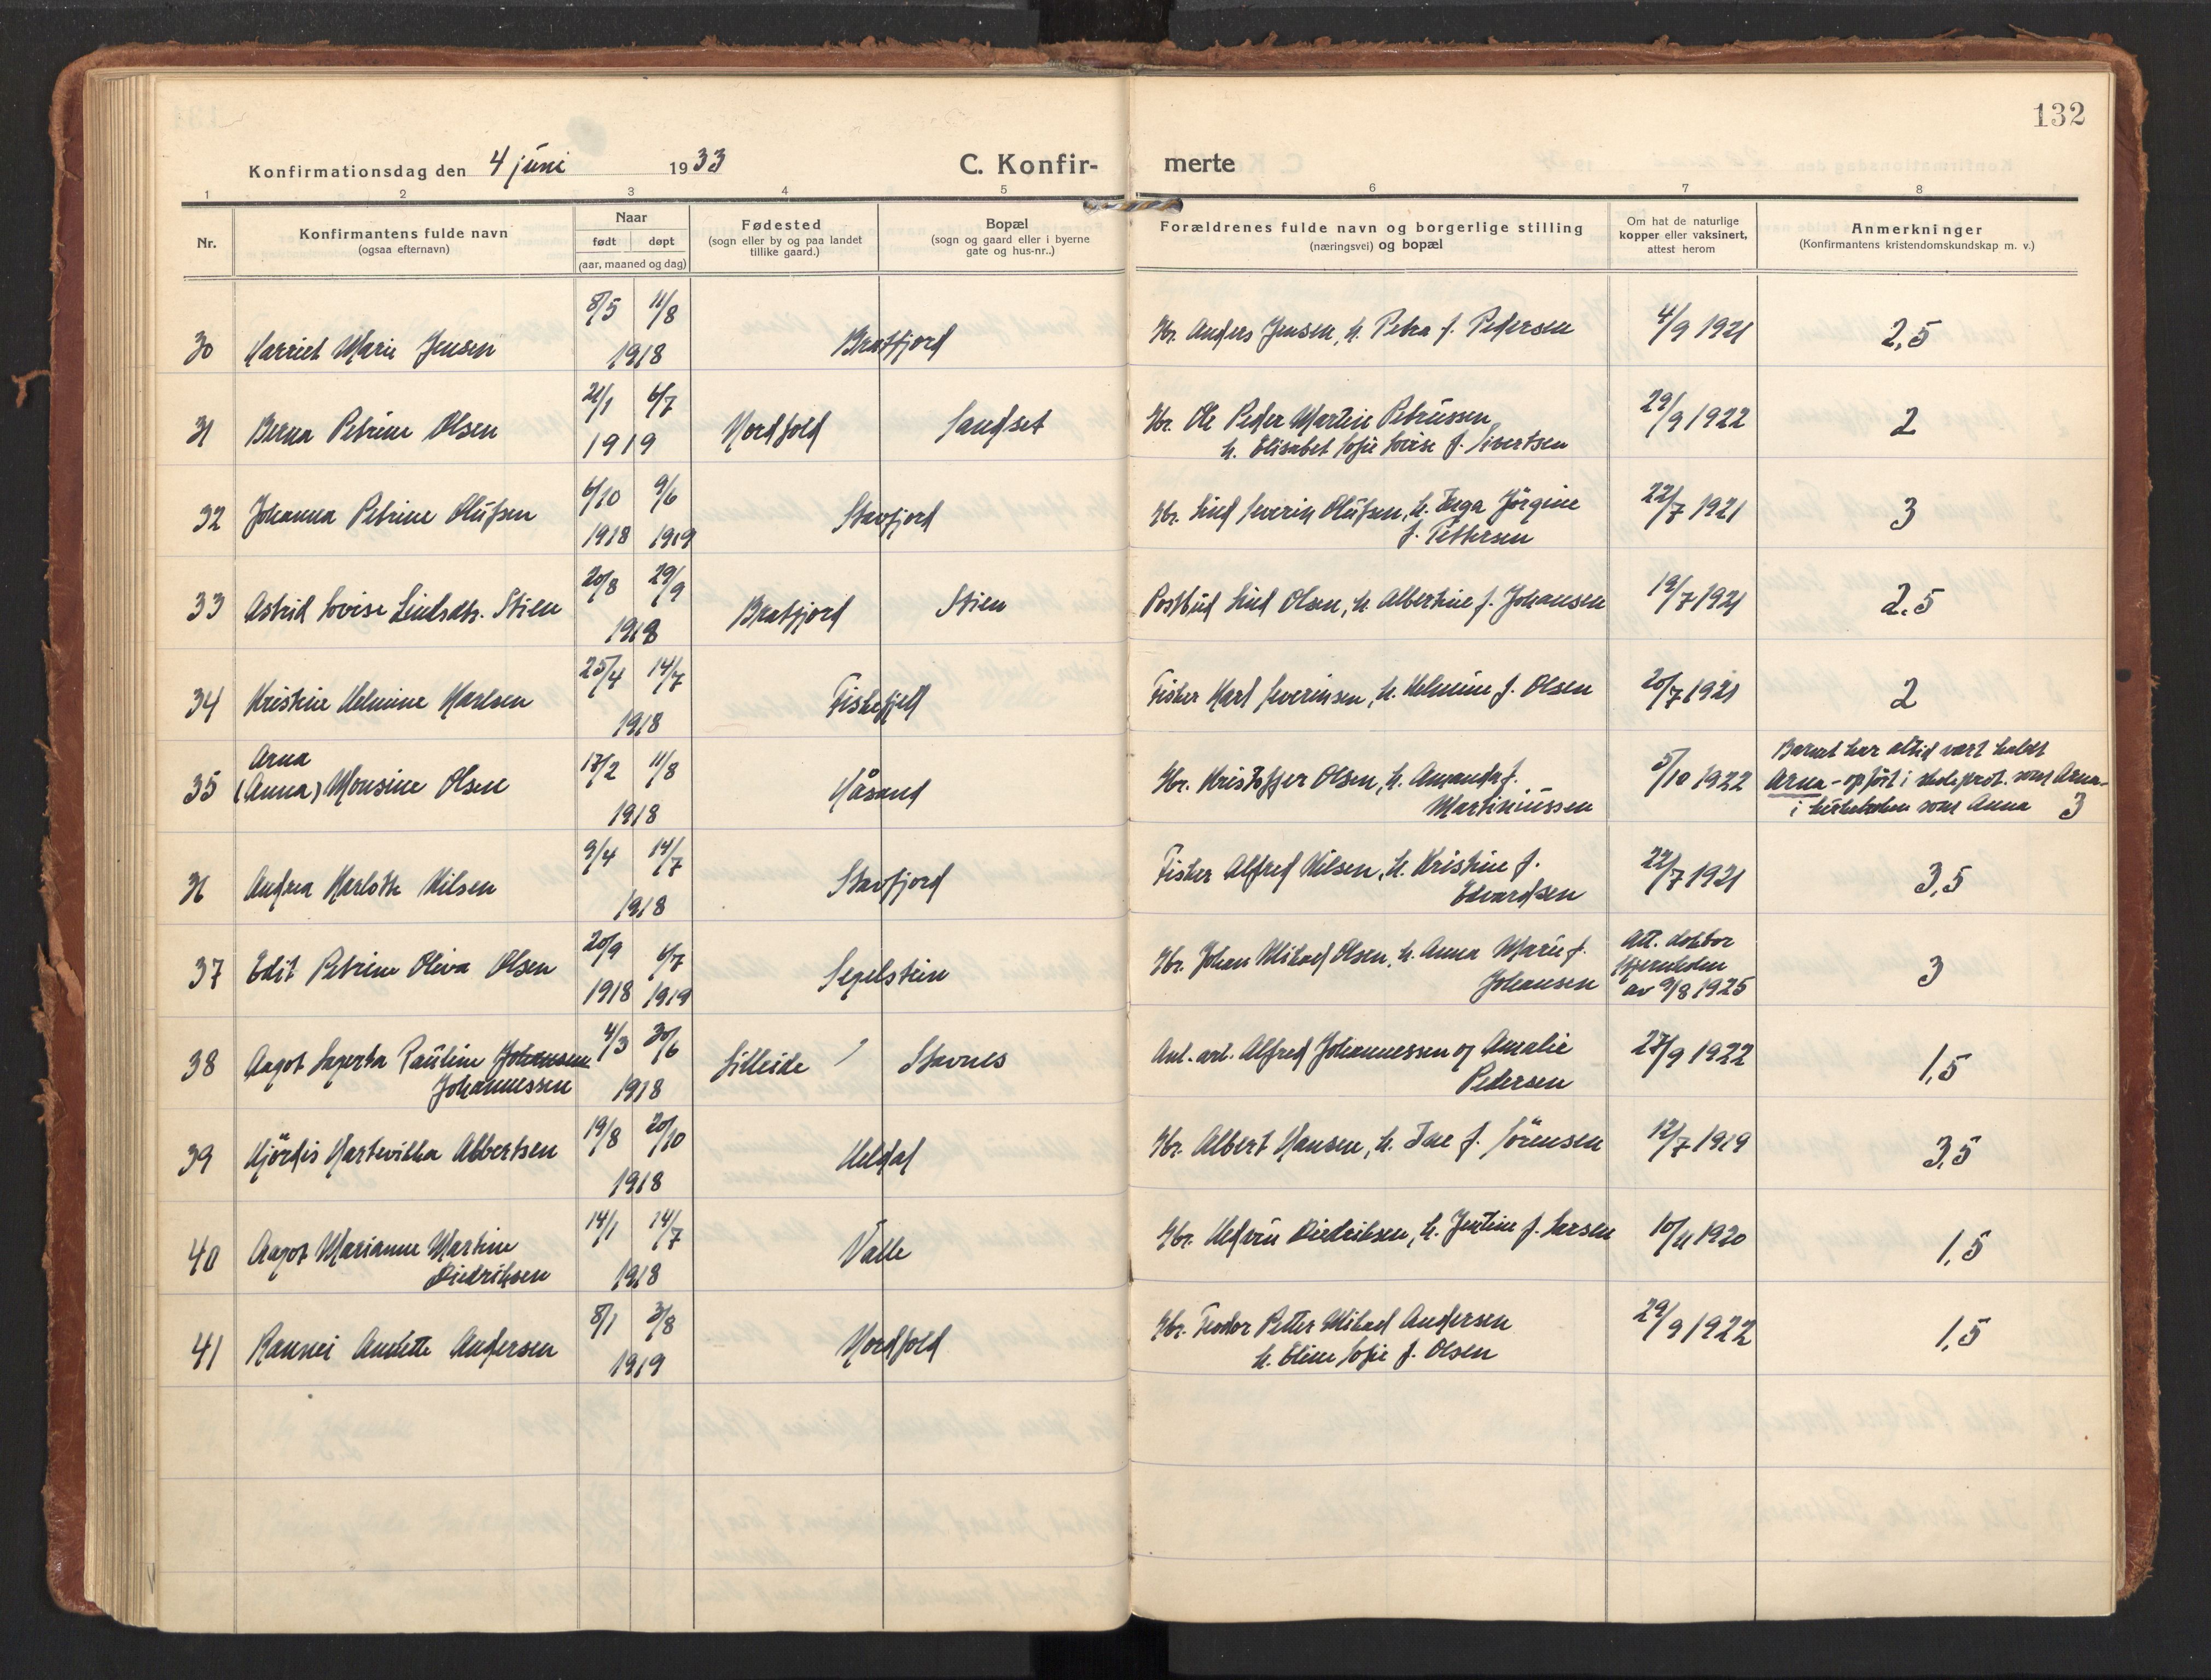 132
Konfirmationsdag den 4 juni 1933
C. Konfir- merte
1 2 3 4 5 6 7 8
Nr.
Konfirmantens fulde navn
(ogsaa efternavn)
Naar
født døpt
(aar, maaned og dag)
Fødested
(sogn eller by og paa landet
tillike gaard.)
Bopæl
(sogn og gaard eller i byerne
gate og hus-nr..)
Forældrenes fulde navn og borgerlige stilling
(næringsvei) og bopæl
Om hat de naturlige
kopper eller vaksinert,
attest herom
Anmerkninger
(Konfirmantens kristendomskundskap m. v.)
30 Harriet Marie Jensen 8/5 11/8 1918 Bratfjord Gbr. Anders Jensen, h. Petra f. Pedersen 4/9 1921 2,5
31 Berna Petrine Olsen 21/1 6/7 1919 Nordfold Sandset Gbr. Ole Peder Martin Petrussen
h. Elisabet Sofie Lovise f. Sivertsen 29/9 1922 2
32 Johanna Petrine Olufsen 6/10 1918 9/6 1919 Stavfjord Gbr. Lind Severin Olufsen, h. Inga Jörgine
f. Pettersen 22/7 1921 3
33 Astrid Lovise Lindsdtr. Stien 20/8 29/9 1918 Bratfjord Stien Postbud Lind Olsen, h. Albertine f. Johansen 19/7 1921 2,5
34 Kristine Helmine Karlsen 25/4 14/7 1918 Fiskefjell Fisker Karl Severinsen, h. Helmine f. Olsen 20/7 1921 2
35 Arna
(Anna) Monsine Olsen 17/2 11/8 1918 Håsand Gbr. Kristoffer Olsen, h. Amanda f.
Martinussen 5/10 1922 Barnet har altid vært kaldt
Arna - opført i skoleprot. som Arna -
i kirkeboken som Anna 3
36 Andrea Karlotte Nilsen 9/4 14/7 1918 Stavfjord Fisker Alfred Nilsen, h. Kristine f.
Edvardsen 22/7 1921 3,5
37 Edit Petrine Oliva Olsen 20/9 1918 6/7 1919 Segelstein Gbr. Johan Mikael Olsen, h. Anna Marie f.
Johansen Att. doktor
av 9/8 1925 3
38 Aagot Lagerta Pauline Johansen
Johannessen 4/3 30/6 1918 Lilleide Stavnes Anl. arb. Alfred Johannessen og Amalie
Pedersen 27/9 1922 1,5
39 Hjördis Hartvikka Albertsen 19/8 20/10 1918 Heldal Gbr. Albert Hansen, h. Ine f. Sörensen 12/7 1919 3,5
40 Aagot Marianne Martine
Diedriksen 14/1 14/7 1918 Valle Gbr. Hedvin Diedriksen, h. Jentine f. Larsen 10/11 1920 1,5
41 Rannei Anette Andersen 8/1 3/8 1919 Nordfold Gbr. Teodor Petter Mikael Andersen
h. Eline Sofie f. Olsen 29/9 1922 1,5